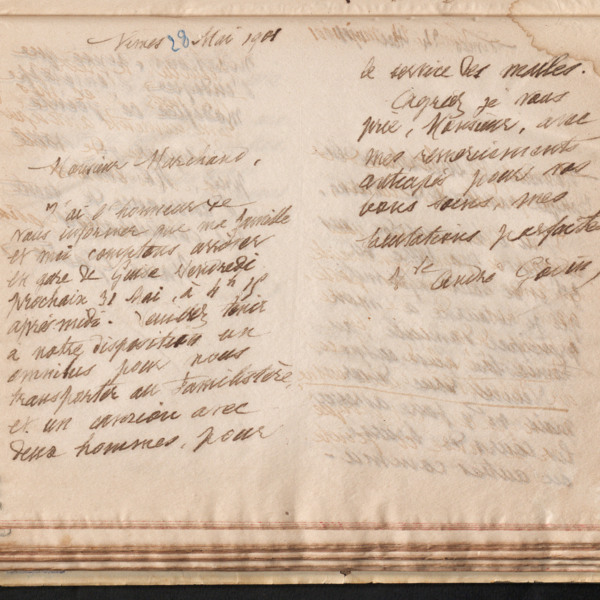 Nimes 28 Mai 1901
Monsieur Marchand,
J'ai l'honneur de
vous informer que ma famille
et moi comptons arriver
en gare de Guise Vendredi
prochain 31 Mai, à 4h
après midi. Veuillez tenir
à notre disposition un
omnibus pour nous
transporter au Familistère
et un camion avec
deux hommes, pour
le service des malles.
Agréez je vous
prie, Monsieur, avec
mes remerciements
anticipés pour vos
bons soins, mes
salutations parfaites
Vte André Godin